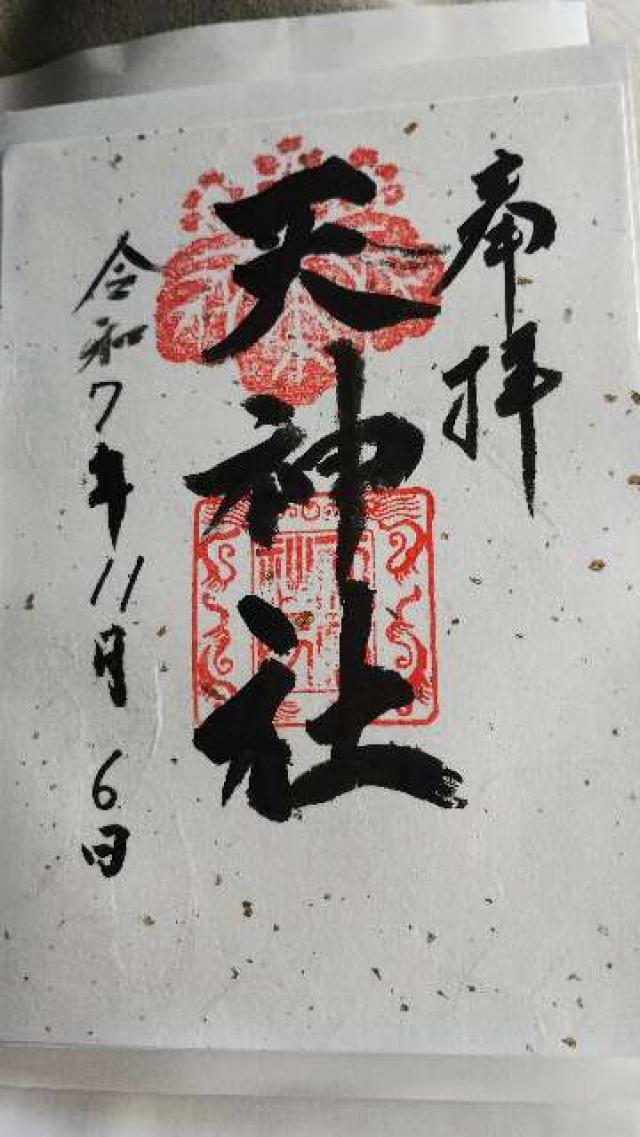 奉拝
天神社
令和7年11月6日